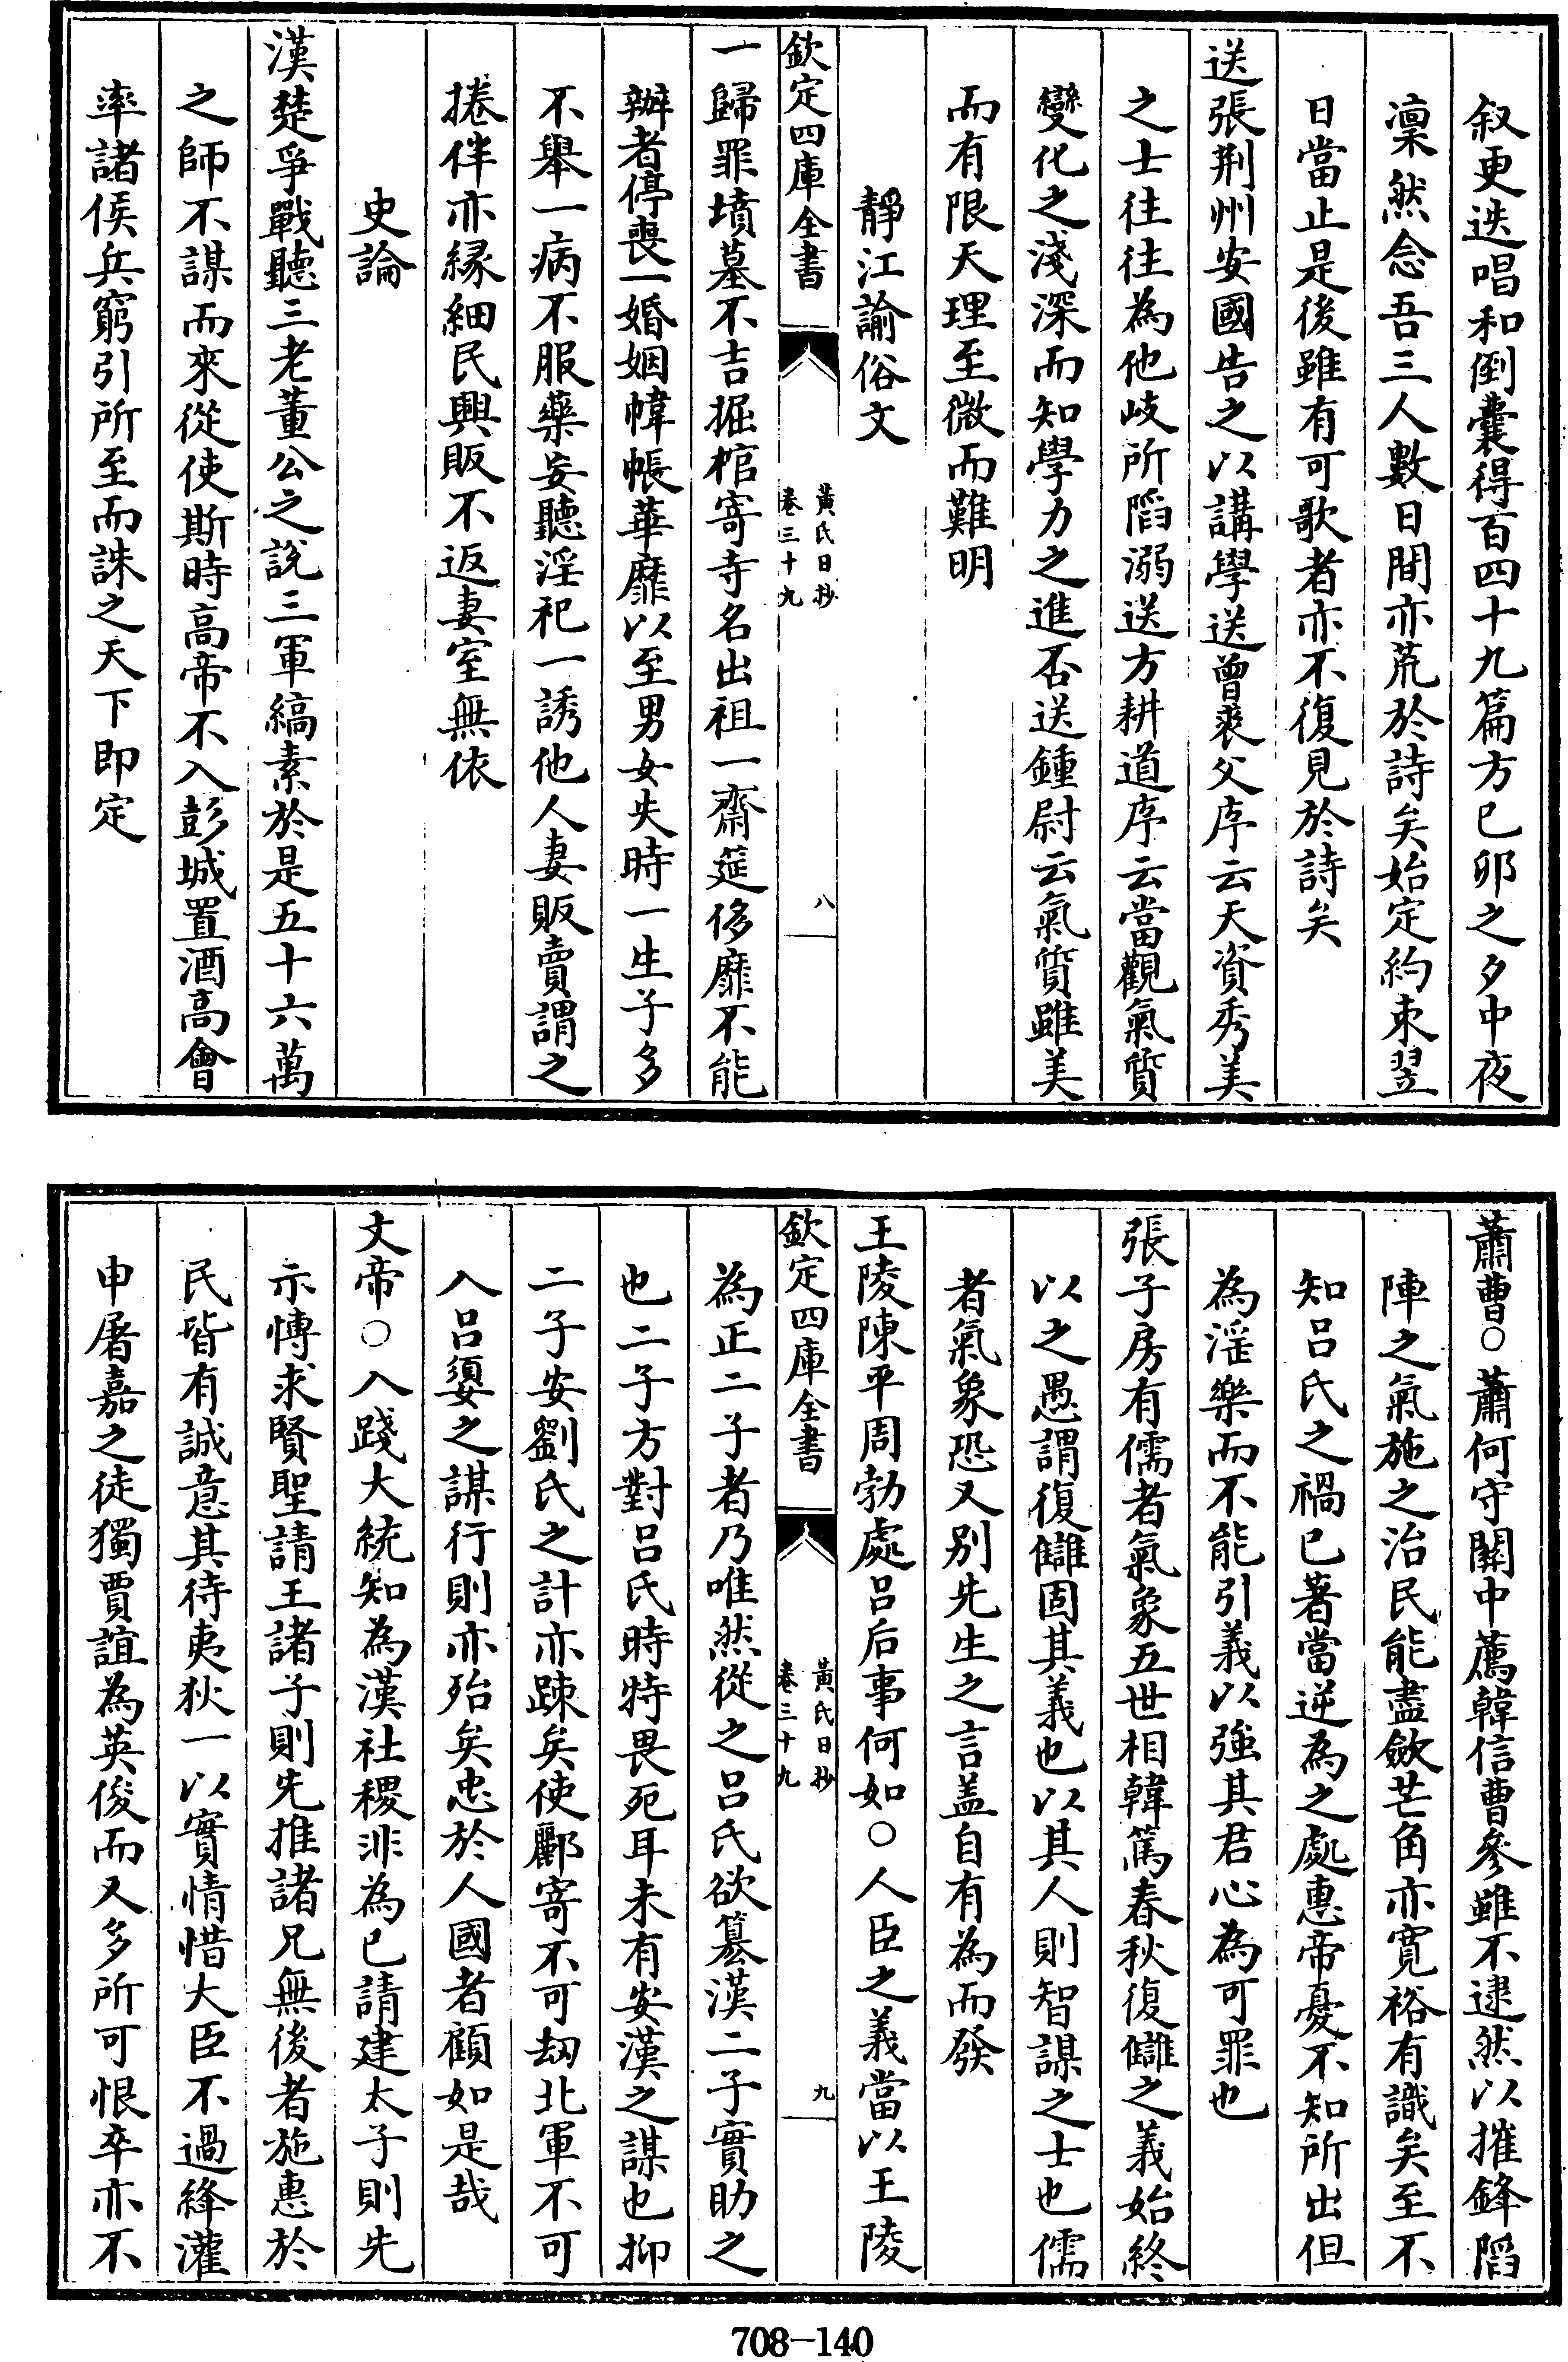 叙更迭唱和倒囊得百四十九篇方已卯之夕中夜
凜然念吾三人數日間亦荒於詩矣始定約束翌
日當止是後雖有可歌者亦不復見於詩矣
送張荆州安國告之以講學送曾裘父序云天資秀美
之士往往為他岐所䧟溺送方耕道序云當觀氣質
變化之淺深而知學力之進否送鍾尉云氣質雖美
而有限天理至微而難明
靜江諭俗文
欽定四庫全書
黃氏日抄
卷三十九
八
一歸罪墳墓不吉掘棺寄寺名出祖一齋筵侈靡不能
辦者停喪一婚姻幃帳華靡以至男女失時一生子多
不舉一病不服藥妄聽淫祀一誘他人妻販賣謂之
捲伴亦緣細民興販不返妻室無依
史論
漢楚爭戰聽三老董公之說三軍縞素於是五十六萬
之師不謀而來從使斯時高帝不入彭城置酒高會
率諸侯兵窮引所至而誅之天下即定
蕭曹○蕭何守關中薦韓信曹參雖不逮然以摧鋒䧟
陣之氣施之治民能盡歛芒角亦寛裕有識矣至不
知呂氏之禍已著當逆為之處惠帝憂不知所出但
為淫樂而不能引義以強其君心為可罪也
張子房有儒者氣象五世相韓篤春秋復讎之義始終
以之愚謂復讎固其義也以其人則智謀之士也儒
者氣象恐又别先生之言盖自有為而發
王陵陳平周勃處呂后事何如○人臣之義當以王陵
欽定四庫全書
黃氏日抄
卷三十九
九
為正二子者乃唯然從之呂氏欲簒漢二子實助之
也二子方對呂氏時特畏死耳未有安漢之謀也抑
二子安劉氏之計亦踈矣使酈寄不可刼北軍不可
入呂嬃之謀行則亦殆矣忠於人國者顧如是哉
文帝○入踐大統知為漢社稷非為已請建太子則先
示博求賢聖請王諸子則先推諸兄無後者施惠於
民皆有誠意其待夷狄一以實情惜大臣不過絳灌
申屠嘉之徒獨賈誼為英俊而又多所可恨卒亦不
708-140